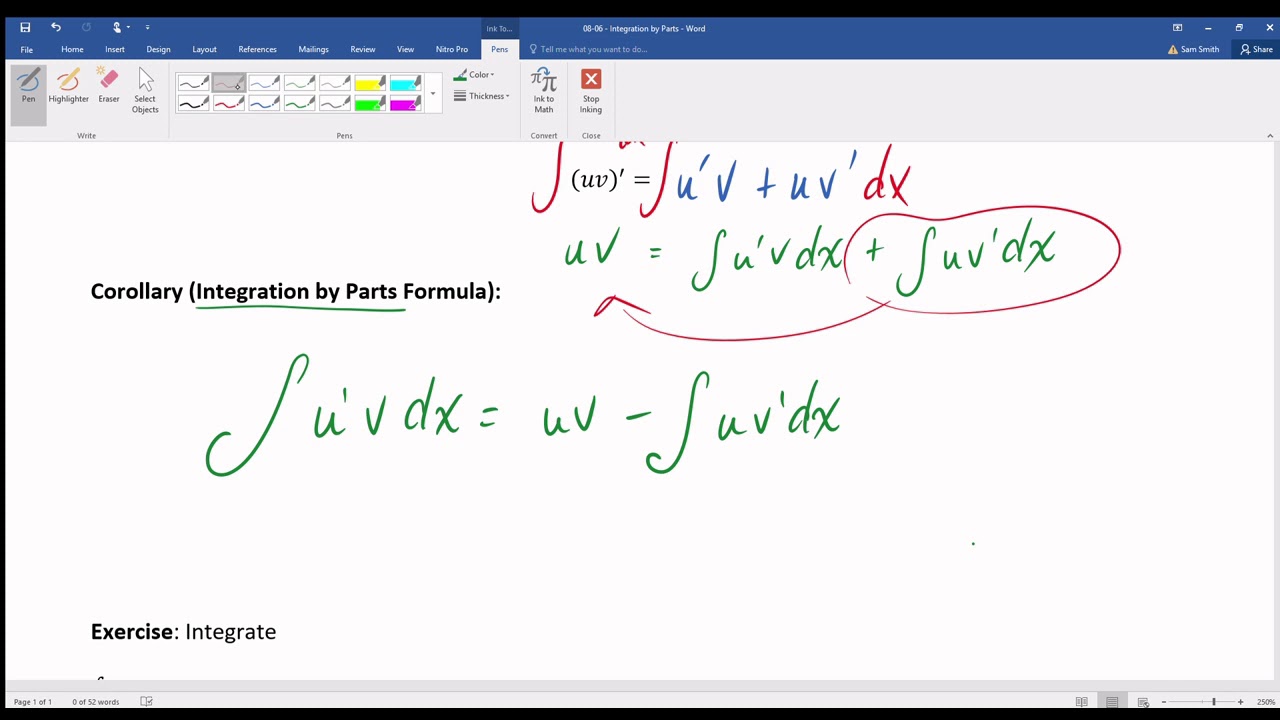 08-06 - Integration by Parts - Word
Ink To...
File Home Insert Design Layout References Mailings Review View Nitro Pro Pens Tell me what you want to do... Sam Smith Share
Pen Highlighter Eraser Select Objects Color Thickness Ink to Math Stop Inking
Write Pens Convert Close
∫ (uv)′ = ∫ u'v + uv' dx
uv = ∫ u'v dx + ∫ uv' dx
Corollary (Integration by Parts Formula):
∫ u'v dx = uv - ∫ uv' dx
Exercise: Integrate
Page 1 of 1 0 of 52 words 250%